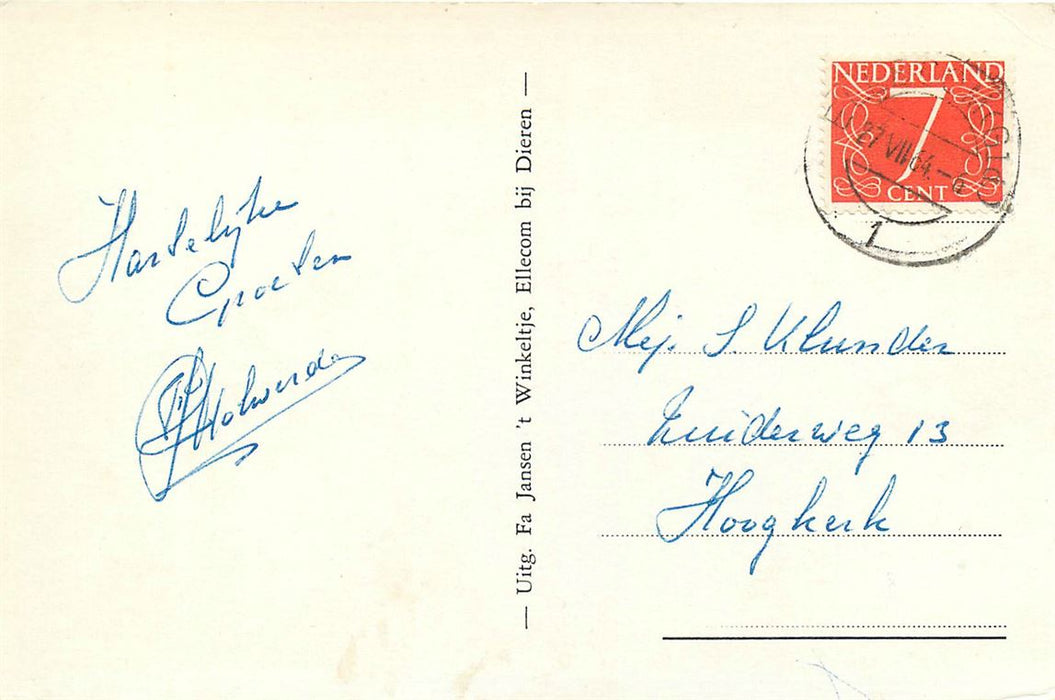 Hartelijke
Groeten
Holwerda
— Uitg. Fa Jansen 't Winkeltje, Ellecom bij Dieren —
NEDERLAND
7
CENT
27 VII 64
1
Mej. S. Klunder
Zuiderweg 13
Hoogkerk